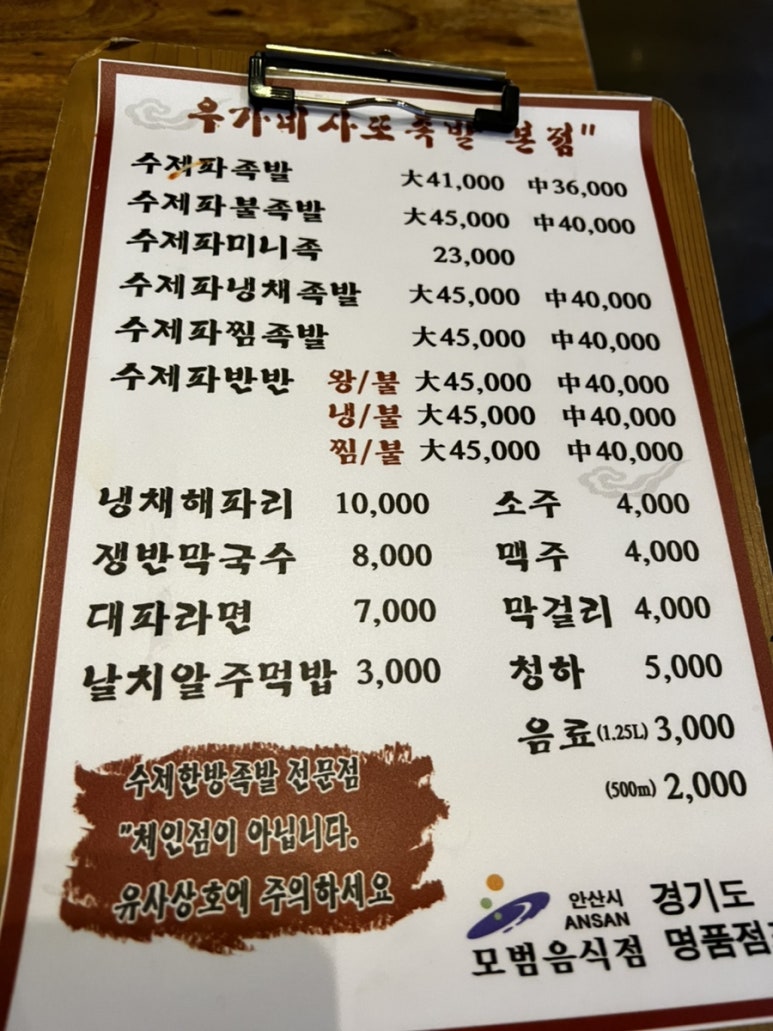 우가네사또족발 본점"
수제파족발 大41,000 中36,000
수제파불족발 大45,000 中40,000
수제파미니족 23,000
수제파냉채족발 大45,000 中40,000
수제파찜족발 大45,000 中40,000
수제파반반 왕/불 大45,000 中40,000
냉/불 大45,000 中40,000
찜/불 大45,000 中40,000
냉채해파리 10,000
쟁반막국수 8,000
대파라면 7,000
날치알주먹밥 3,000
소주 4,000
맥주 4,000
막걸리 4,000
청하 5,000
음료(1.25L) 3,000
(500m) 2,000
수제한방족발 전문점
"체인점이 아닙니다.
유사상호에 주의하세요
안산시
ANSAN
모범음식점
경기도
명품점